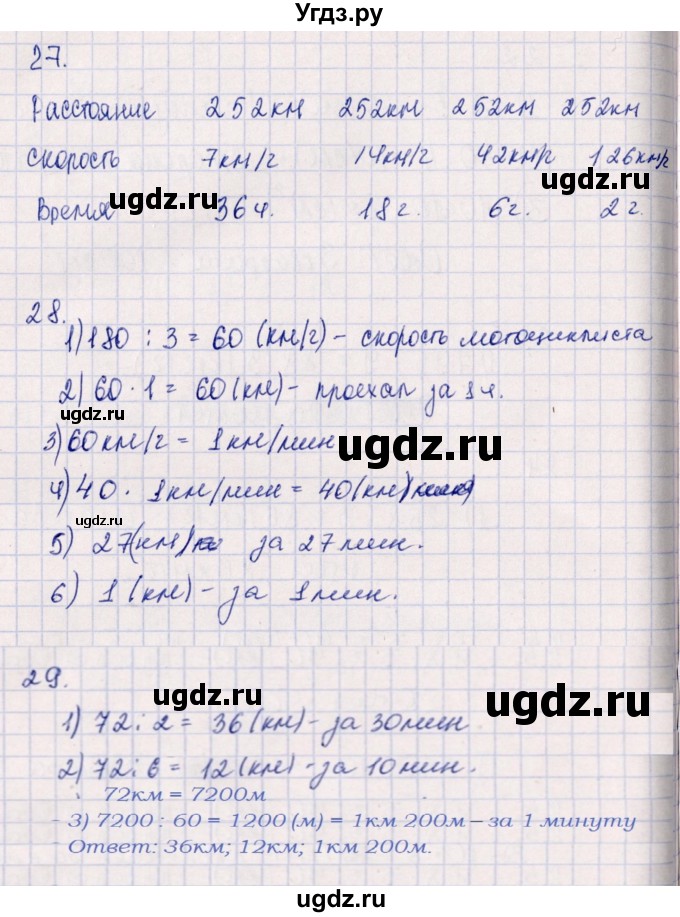 Угдз.ру
27.
Расстояние 252км 252км 252км 252км
Скорость 7км/г 14км/г 42км/г 126км/г
ugdz.ru
Время 36ч. 18г. 6г. 2г.
ugdz.ru ugdz.ru
28.
1) 180 : 3 = 60 (км/г) – скорость мотоциклиста
2) 60 · 1 = 60 (км) – проехал за 1ч.
3) 60км/г = 1км/мин
ugdz.ru
4) 40 · 1км/мин = 40 (км)
ugdz.ru
5) 27 (км) за 27 мин.
6) 1 (км) – за 1 мин.
29.
ugdz.ru ugdz.ru
1) 72 : 2 = 36 (км) – за 30 мин
2) 72 : 6 = 12 (км) – за 10 мин.
72км = 7200м
3) 7200 : 60 = 1200 (м) = 1км 200м – за 1 минуту
Ответ: 36км; 12км; 1км 200м.
ugdz.ru